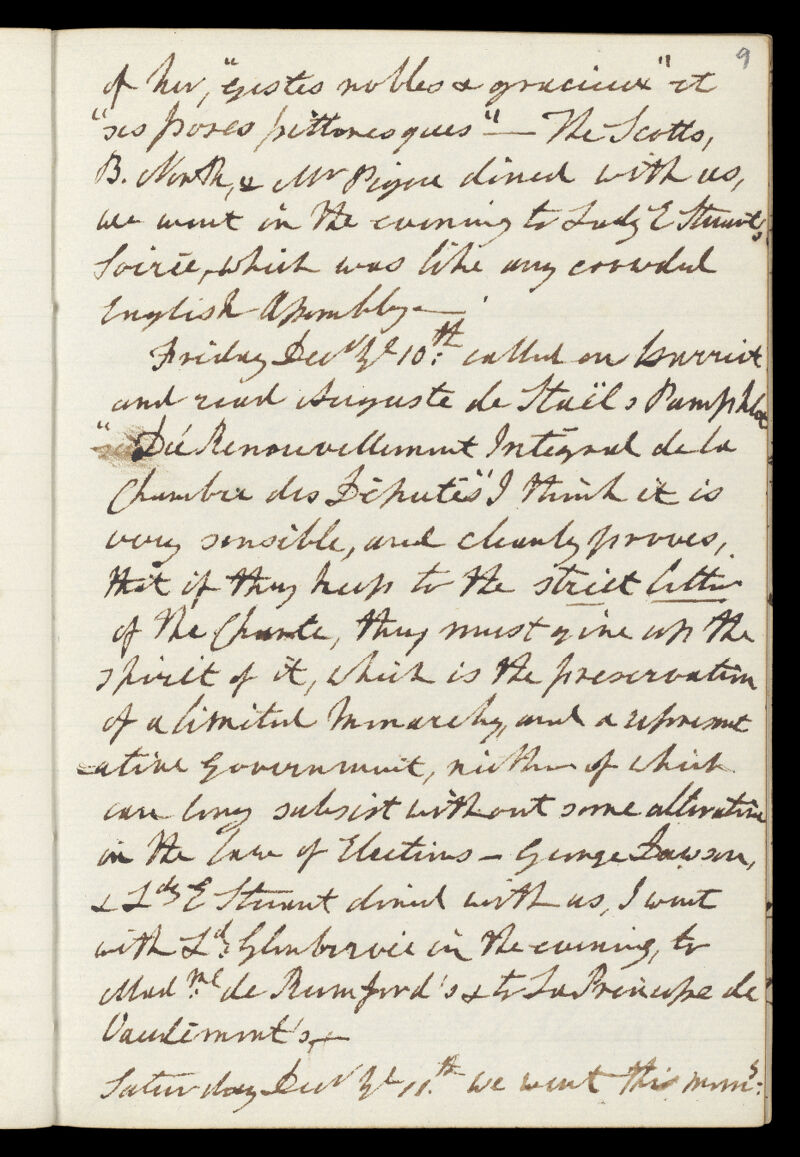 9
of her, "gestes nobles & gracieux" et
"ses poses pittoresques" — The Scotts,
B. North, & Mr Pigou dined with us,
we went in the evening to Lady E Stuart's
Soirée, which was like any crowded
English Assembly —
Friday Decbr 10:th called on Harriet
and read Auguste de Staël's Pamphlet
"Du Renouvellement Intégral de la
Chambre des Députés" I think it is
very sensible, and clearly proves,
that if they keep to the strict letter
of the Charte, they must give up the
spirit of it, which is the preservation
of a limited Monarchy, and a represent
-ative Government, neither of which
can long subsist without some alteration
in the Law of Elections — George Dawson,
& Ldy E Stuart dined with us, I went
with Ld: Glenbervie in the evening, to
Madme de Rumford's & to La Princesse de
Vaudémont's, —
Saturday Decbr 11.th we went this morng: